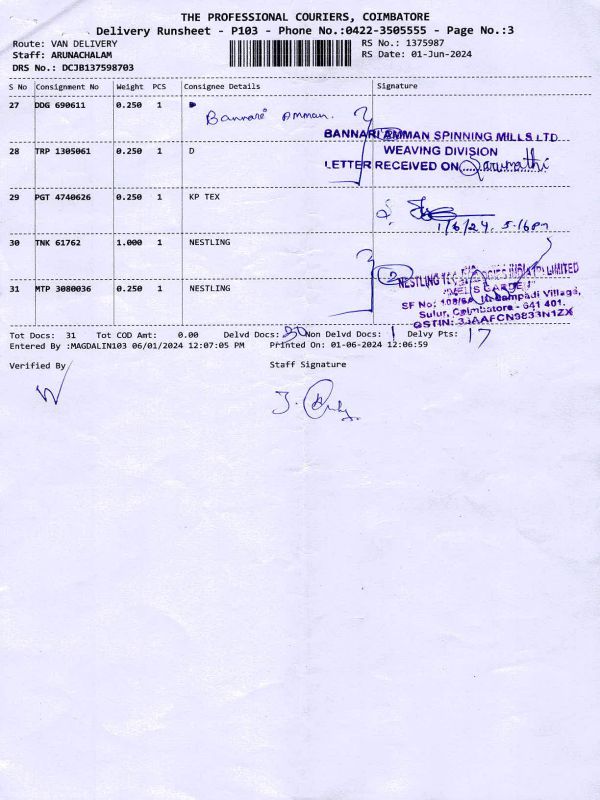 THE PROFESSIONAL COURIERS, COIMBATORE
Delivery Runsheet - P103 - Phone No.:0422-3505555 - Page No.:3
Route: VAN DELIVERY RS No.: 1375987
Staff: ARUNACHALAM RS Date: 01-Jun-2024
DRS No.: DCJB137598703
S No Consignment No Weight PCS Consignee Details Signature
27 DDG 690611 0.250 1 D
Bannari Amman.
BANNARI AMMAN SPINNING MILLS LTD
28 TRP 1305061 0.250 1 D WEAVING DIVISION
LETTER RECEIVED ON
29 PGT 4740626 0.250 1 KP TEX
1/6/24, 5.16pm
30 TNK 61762 1.000 1 NESTLING
2 NESTLING LIMITED
31 MTP 3080036 0.250 1 NESTLING
SF No: Village,
Sulur, Coimbatore - 641 401.
GSTIN: 33AAFCN9833N1ZX
Tot Docs: 31 Tot COD Amt: 0.00 Delvd Docs: 30 Non Delvd Docs: 1 Delvy Pts: 17
Entered By :MAGDALIN103 06/01/2024 12:07:05 PM Printed On: 01-06-2024 12:06:59
Verified By Staff Signature